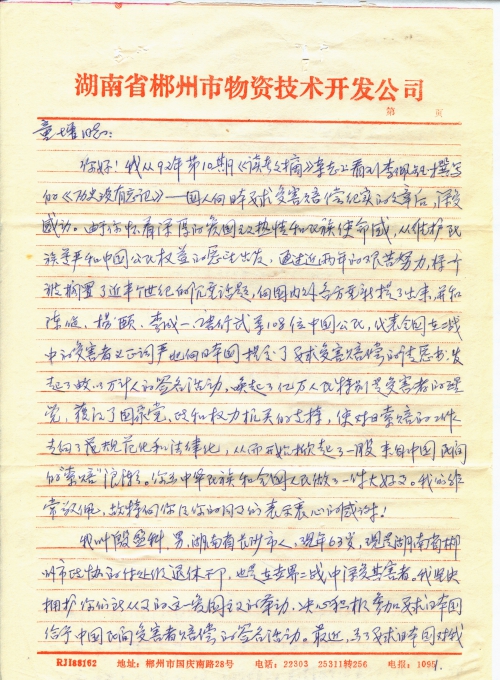 湖南省郴州市物资技术开发公司
第 页
童增同志:
你好!我从92年第10期《读者文摘》杂志上看到李佩钰撰写
的《历史没有忘记》——国人向日本要求受害赔偿纪实的文章后,深受
感动。由于你怀着深厚的爱国主义热情和民族使命感,从维护民
族尊严和中国公民权益的愿望出发,通过近两年的艰苦努力,将个
被搁置了近半个世纪的沉重话题,向国内外各方重新提了出来,并和
陈 、杨颐、李成一、 等108位中国公民,代表全国在二战
中的受害者义正词严地向日本国提出了要求受害赔偿的请愿书,发
起了数以万计人的签名活动,唤起了亿万人民特别是受害者的理
觉,获得了国家党、政和权力机关的支持,使对日索赔的工作
走向了规范化和法律化,从而开始掀起了一股来自中国民间
的“索赔”浪潮。你为中华民族和全国人民做了一件大好事。我们非
常敬佩,故特向你及你的同事们表示衷心的感谢!
我叫殷 ,男,湖南省长沙市人,现年63岁,现是湖南省郴
州市政协的 退休干部,也是在世界二战中深受其害者。我坚决
拥护你们所从事的这一爱国主义的举动,决心积极参加要求日本国
给予中国民间受害者赔偿的签名活动。最近,为了要求日本国对我
RJJ88162 地址:郴州市国庆南路28号 电话:22303 25311转256 电报:1095
1.